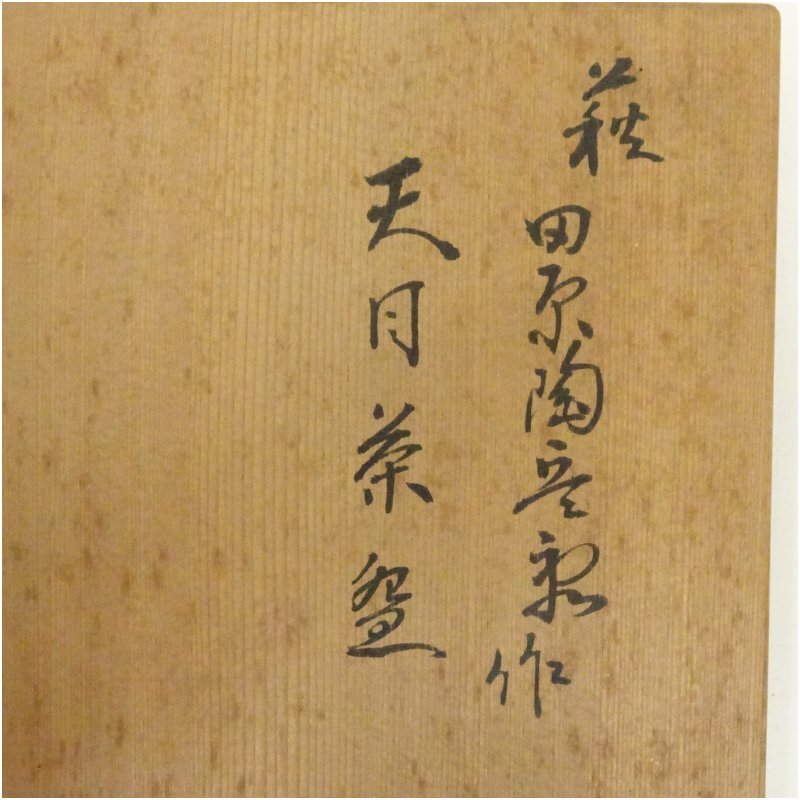 萩 田原陶兵衛作
天目茶盌